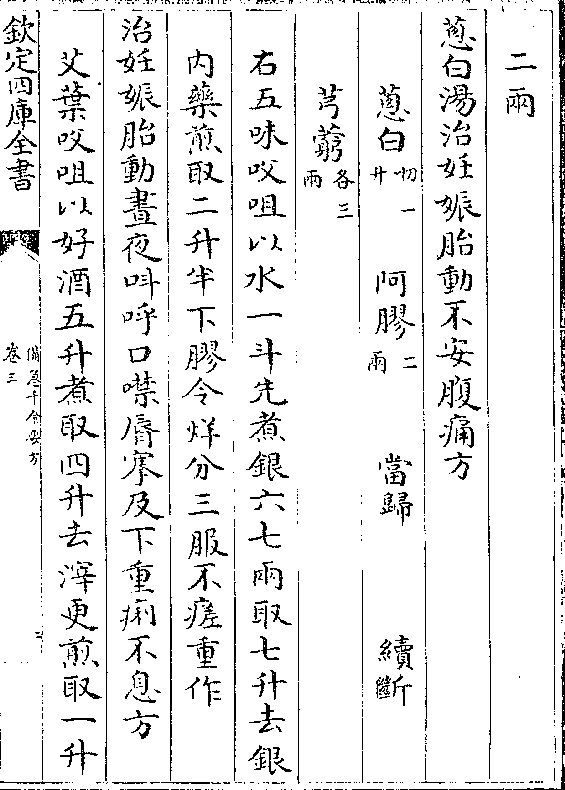 二兩
葱白湯治妊娠胎動不安腹痛方
葱白切一升 阿膠二兩 當歸 續斷
芎藭各三兩
右五味㕮咀以水一斗先煮銀六七兩取七升去銀
内藥煎取二升半下膠令烊分三服不瘥重作
治妊娠胎動晝夜呌呼口噤唇搴及下重痢不息方
艾葉㕮咀以好酒五升煮取四升去滓更煎取一升
欽定四庫全書
備急千金要方
卷三